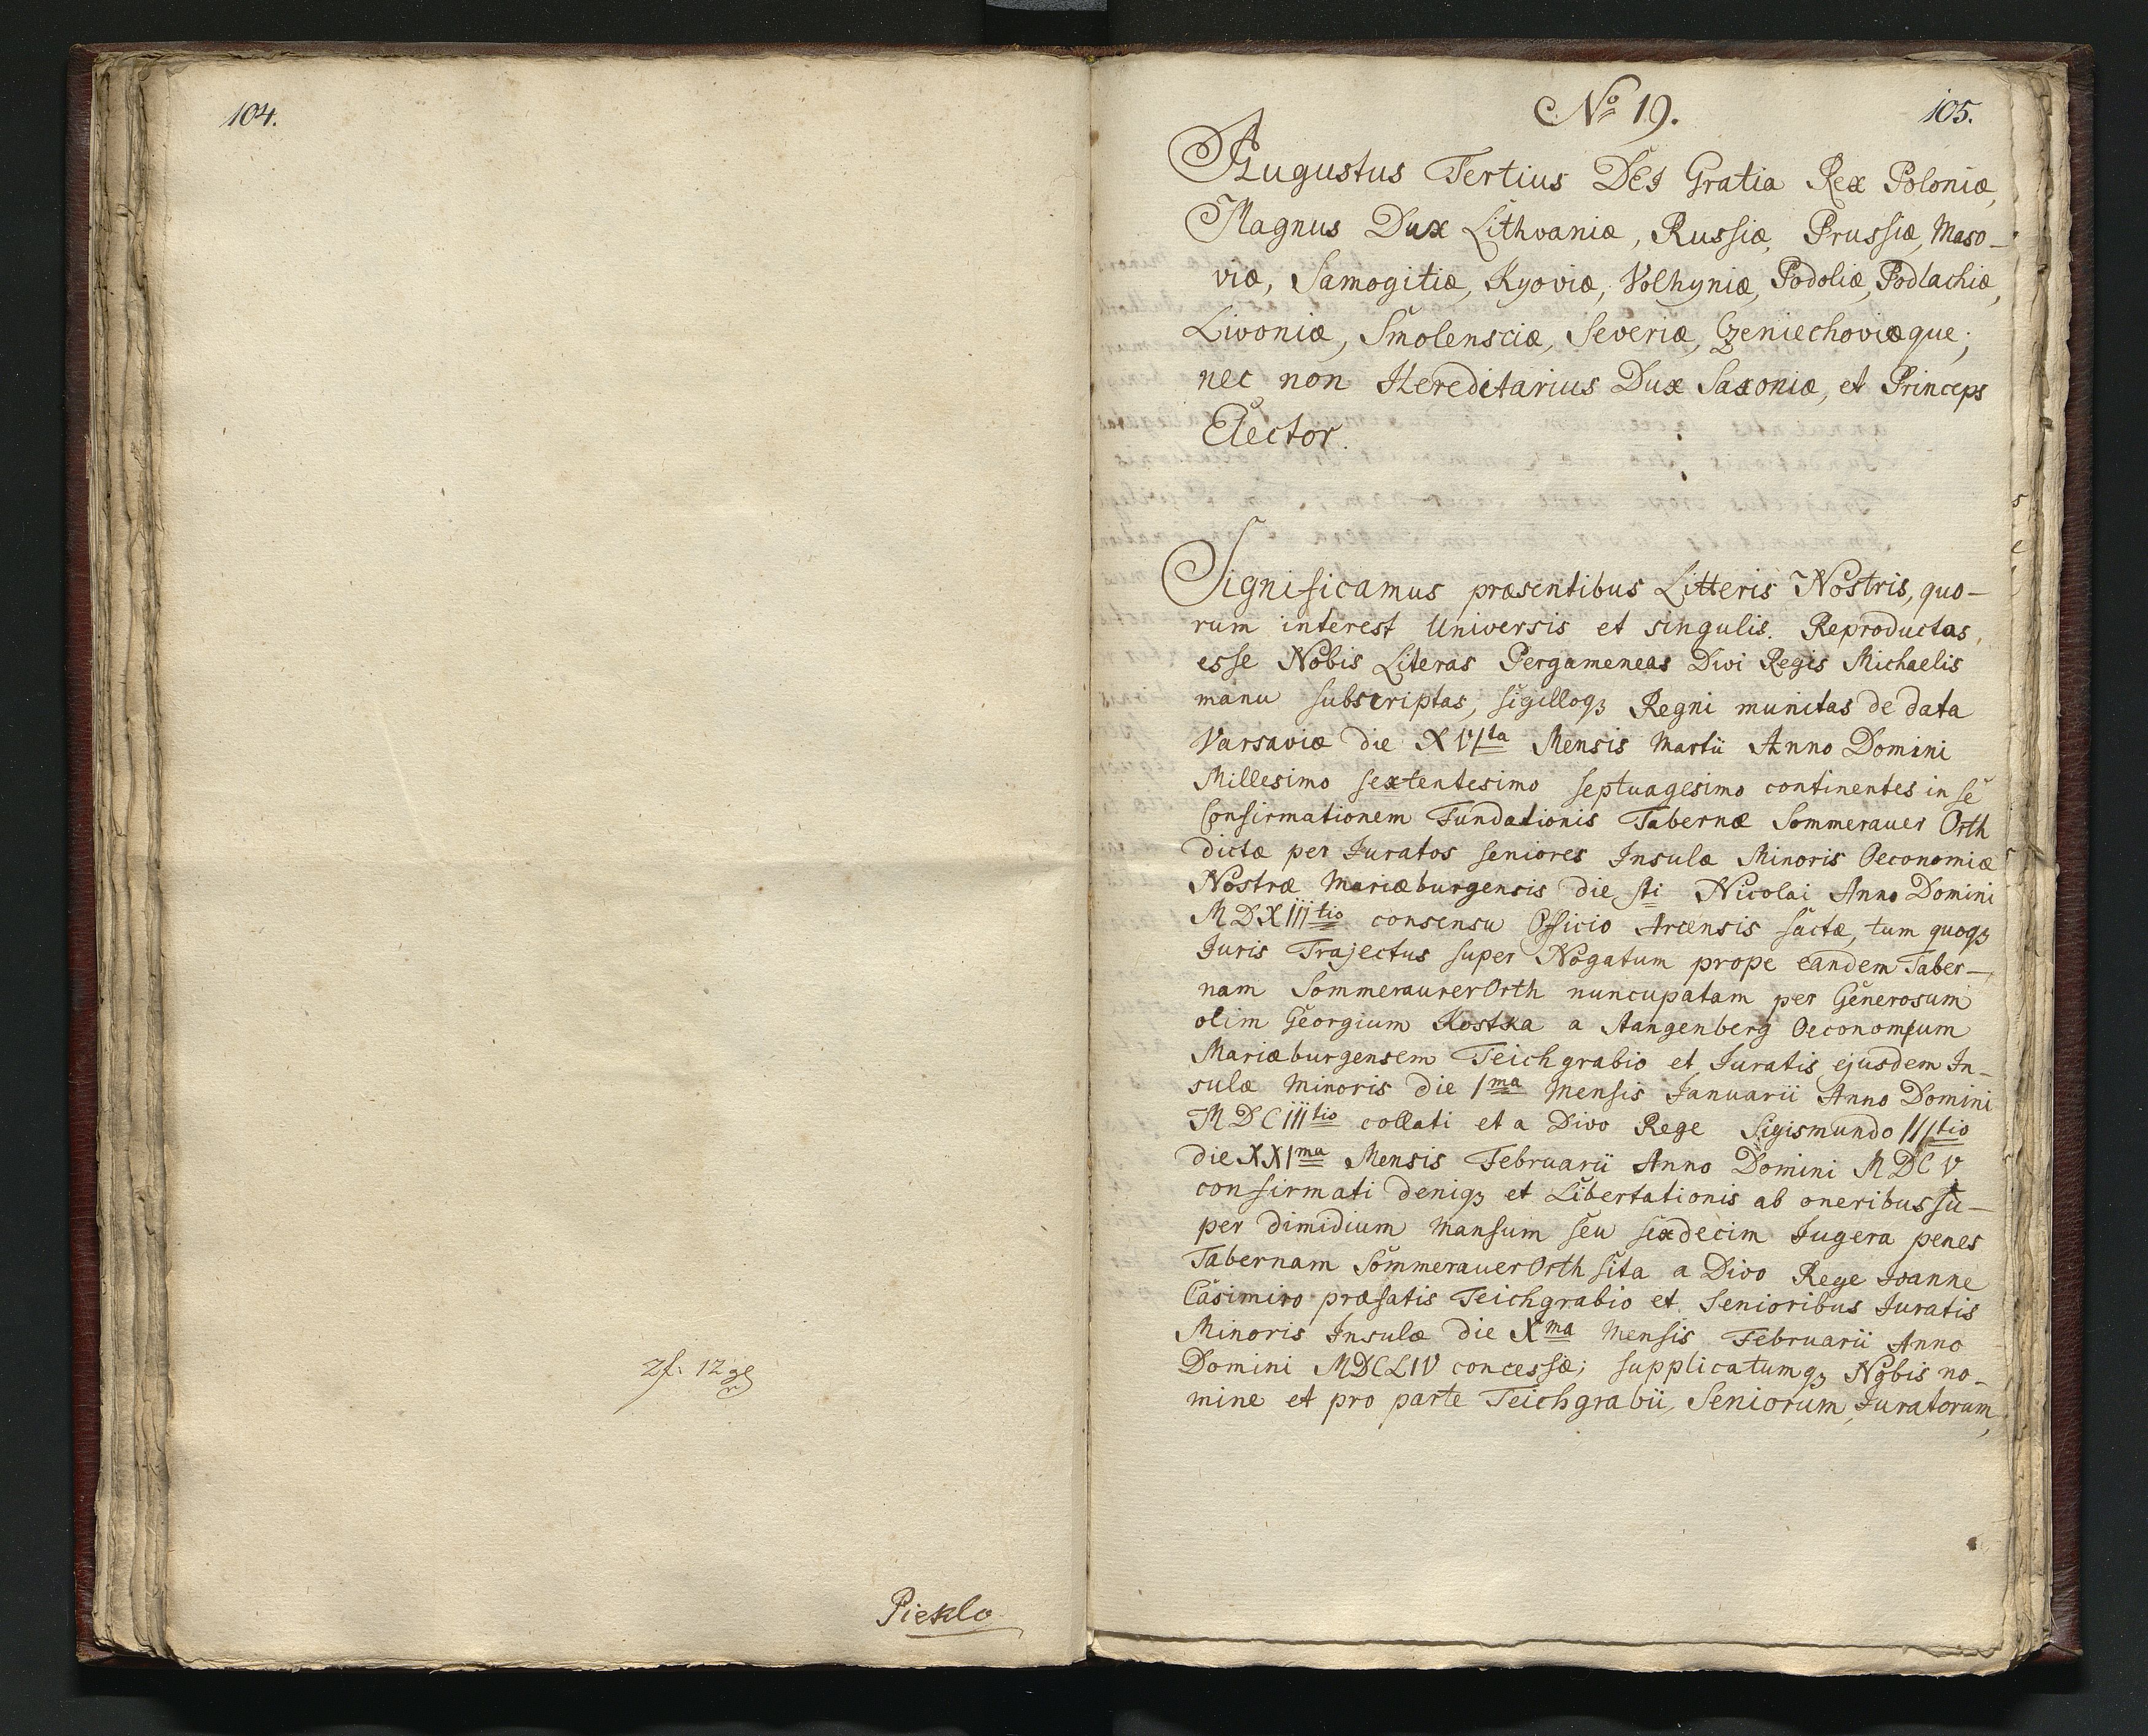 104.
2f: 12 gr
Pieklo
No 19.
105.
Augustus Tertius DEI Gratia Rex Poloniæ,
Magnus Dux Lithvaniæ, Russiæ, Prussiæ, Maso-
viæ, Samogitiæ, Kyoviæ, Volhyniæ, Podoliæ, Podlachiæ,
Livoniæ, Smolensciæ, Severiæ, Czeniechoviæque;
nec non Hereditarius Dux Saxoniæ, et Princeps
Elector.
Significamus præsentibus Litteris Nostris, quo-
rum interest Universis et singulis. Reproductas
esse Nobis Literas Pergameneas Divi Regis Michaelis
manu subscriptas, sigilloqʒ Regni munitas de data
Varsaviæ die XVIta Mensis Martii Anno Domini
Millesimo sextentesimo septuagesimo continentes in se
Confirmationem Fundationis Tabernæ Sommerauer Orth
dictæ per Juratos seniores Insulæ Minoris Oeconomiæ
Nostræ Mariæburgensis die sti Nicolai Anno Domini
MDXIIItio consensu Officio Arcensis factæ, tum quoqʒ
Juris Trajectus super Nogatum prope eandem Taber-
nam SommeraurerOrth nuncupatam per Generosum
olim Georgium Kostka a Stangenberg Oeconomum
Mariæburgensem Teichgrabio et Juratis ejusdem In-
sulæ Minoris die 1ma Mensis Januarii Anno Domini
MDCIIItio collati et a Divo Rege Sigismundo IIItio
die XXIma Mensis Februarii Anno Domini MDCV
confirmati deniqʒ et Libertationis ab oneribus su-
per dimidium Mansum seu sexdecim Jugera penes
Tabernam SommerauerOrth sita a Divo Rege Joanne
Casimiro præfatis Teichgrabio et Senioribus Juratis
Minoris Insulæ die Xma Mensis Februarii Anno
Domini MDCLIV concessæ; supplicatumqʒ Nobis no-
mine et pro parte Teichgrabii, Seniorum, Juratorum,